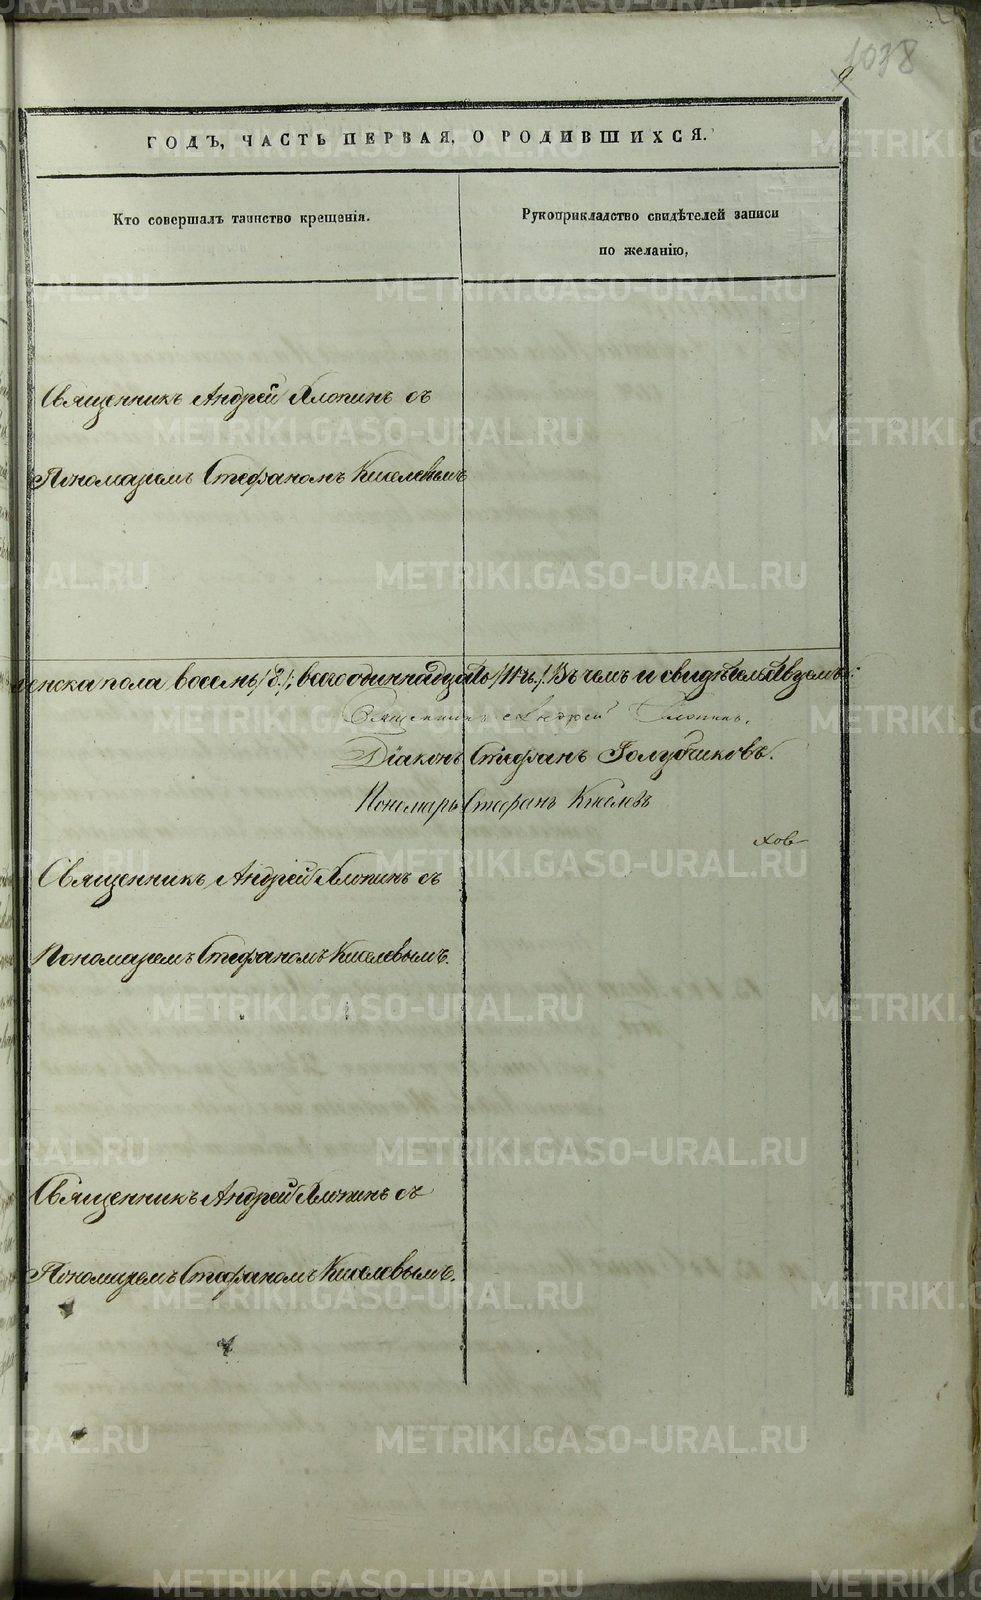 1038
9
ГОДЪ, ЧАСТЬ ПЕРВАЯ, О РОДИВШИХСЯ.
Кто совершалъ таинство крещенія.
Рукоприкладство свидѣтелей записи
по желанію,
Священникъ Андрей Хлопинъ съ
Пономаремъ Стефаномъ Киселевымъ
женска пола восемь /8/, всего одиннадцать /11ть/. Въ чемъ и свидѣтельствуемъ:
Священникъ Андрей Хлопинъ.
Діаконъ Стефанъ Голубчиковъ.
Пономарь Стефанъ Киселевъ
Священникъ Андрей Хлопинъ съ
Пономаремъ Стефаномъ Киселевымъ.
Священникъ Андрей Хлопинъ съ
Пономаремъ Стефаномъ Киселевымъ.
METRIKI.GASO-URAL.RU